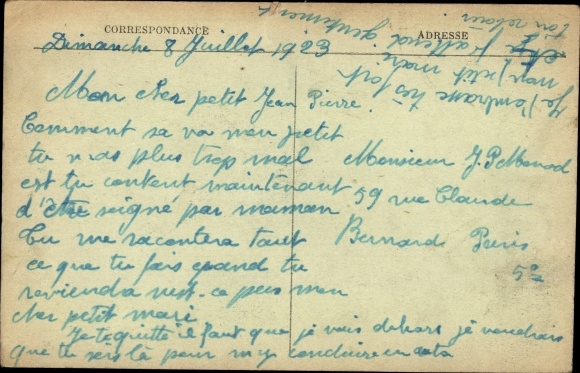 CORRESPONDANCE
ADRESSE
Dimanche 8 Juillet 1923
Mon cher petit Jean Pierre
Comment sa va mon petit
tu n'as plus trop mal
est tu content maintenant
d'être soigné par maman
Tu me racontera tout
ce que tu fais quand tu
reviendra n'est-ce pas mon
cher petit mari
Je te quitte il faut que je vais dehors je voudrais
que tu sois là pour m'y conduire en auto
Monsieur J.P. Monod
59 rue Claude
Bernard Paris
5e
Je t'embrasse très fort
mon petit mari
et j'attend gentiment
ton retour